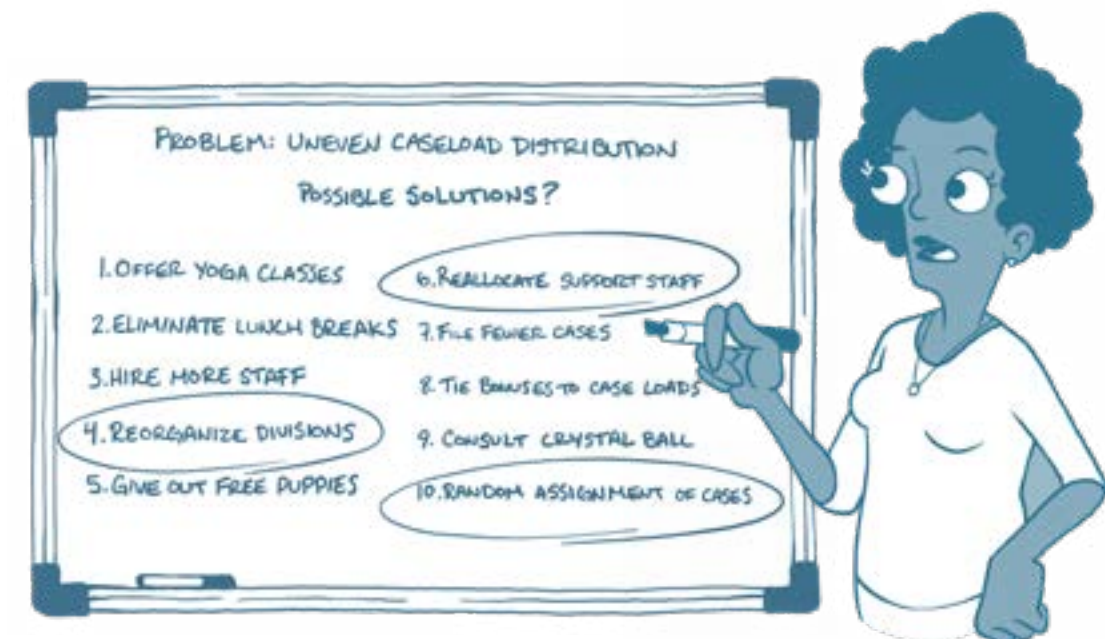 PROBLEM: UNEVEN CASELOAD DISTRIBUTION
POSSIBLE SOLUTIONS?
1. OFFER YOGA CLASSES
2. ELIMINATE LUNCH BREAKS
3. HIRE MORE STAFF
4. REORGANIZE DIVISIONS
5. GIVE OUT FREE PUPPIES
6. REALLOCATE SUPPORT STAFF
7. FILE FEWER CASES
8. TIE BONUSES TO CASE LOADS
9. CONSULT CRYSTAL BALL
10. RANDOM ASSIGNMENT OF CASES